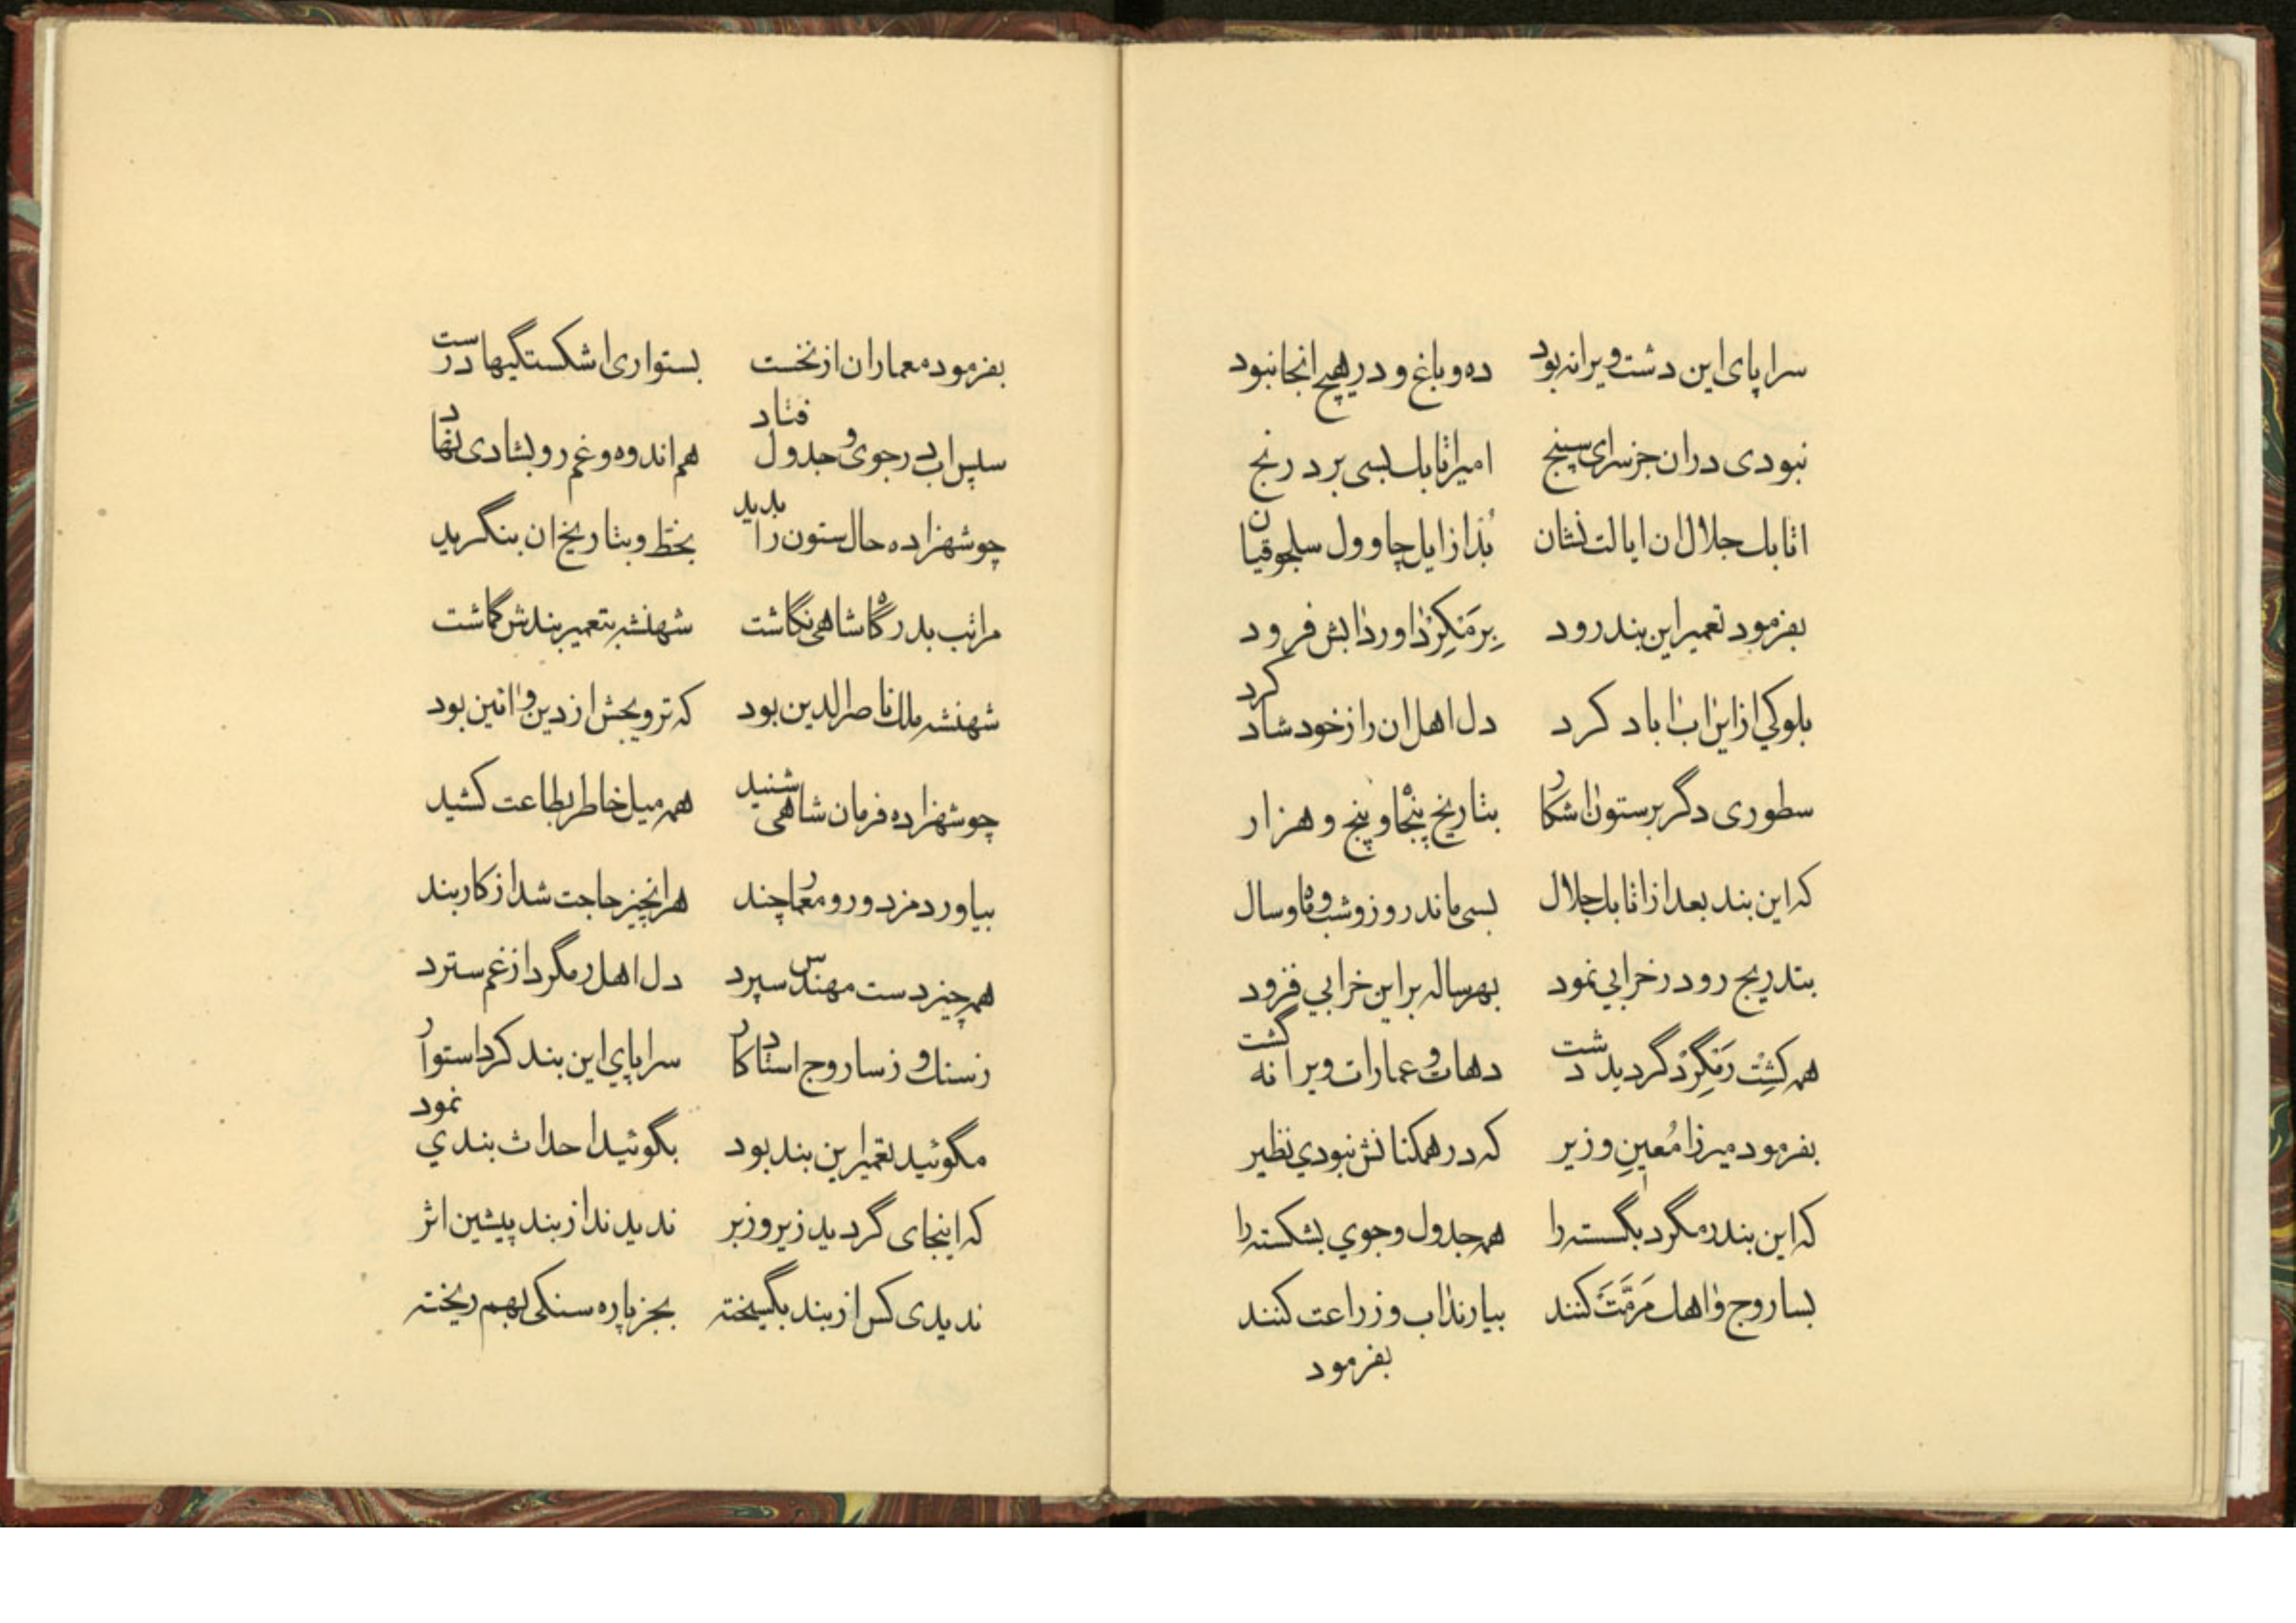 سراپای این دشت ویرانه بود ده و باغ و در هیچ انجا نبود
نبودی دران جز سرای سپنج امیر اتابک بسی برد رنج
اتابک جلال ان ایالت نشان بُد از ایل چاوول سلجوقیان
بفرمود تعمیر این بند رود بِرمَنکِرْد اورد ابش فرود
بلوکی از این اب اباد کرد دل اهل ان را ز خود شاد کرد
سطوری دگر بر ستون اشکار بتاریخ پنجاو پنج و هزار
که این بند بعد از اتابک جلال بسی ماند روز و شب و ماه و سال
بتدریج رو در خرابی نمود بهر ساله بر این خرابی فزود
همه کِشْتِ رَمَگِرْد گردید دشت دهات و عمارات ویرانه گشت
بفرمود میرزا مُعین وزیر که در همکنانش نبودی نظیر
که این بند رمگرد بگسسته را همه جدول و جوی بشکسته را
بساروج و اهک مَرَمَّتْ کنند بیارند اب و زراعت کنند
بفرمود
بفرمود معماران از نخست بستواری اشکستگیها درست
سپس اب در جوی و جدول فتاد هم اندوه و غم رو بشادی نهاد
چو شهزاده حال ستون را بدید بخط و بتاریخ ان بنگرید
مراتب بدرگاه شاهی نگاشت شهنشه بتعمیر بندش گماشت
شهنشه ملک ناصرالدین بود که ترویجش از دین و ائین بود
چو شهزاده فرمان شاهی شنید همه میل خاطر بطاعت کشید
بیاورد مزدور و معمار چند هر انچیز حاجت شد از کار بند
همه چیز دست مهندس سپرد دل اهل رمگرد از غم سترد
ز سنگ و ز ساروج استاد کار سراپای این بند کرد استوار
مگوئید تعمیر این بند بود بگوئید احداث بندی نمود
که اینجای گردید زیر و زبر ندیدند از بند پیشین اثر
ندیدی کس از بند بگسیخته بجز پاره سنگی بهم ریخته